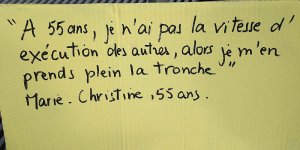 "A 55 ans, je n'ai pas la vitesse d'
exécution des autres, alors je m'en
prends plein la tronche"
Marie. Christine, 55 ans.